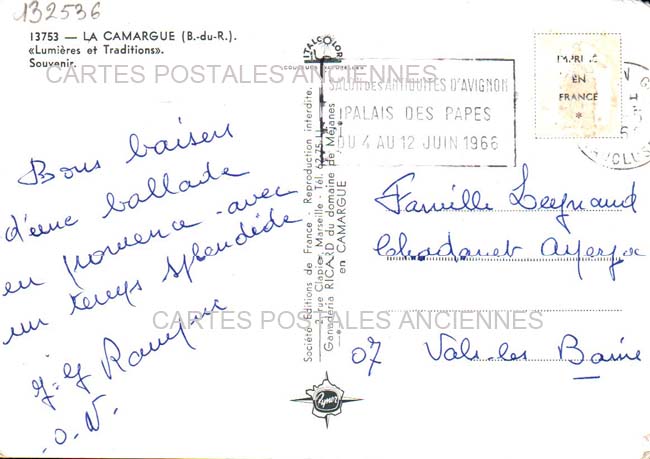 132536
13753 — LA CAMARGUE (B.-du-R.).
«Lumières et Traditions».
Souvenir.
ITALCOLOR
CARTES POSTALES ANCIENNES
SALON DES ANTIQUITÉS D'AVIGNON
PALAIS DES PAPES
DU 4 AU 12 JUIN 1966
IMPRIMÉ
EN
FRANCE
*
Bons baisers
d'une ballade
en provence avec
un temps splendide
Société Editions de France - Reproduction interdite.
rue Clapier, Marseille - Tél. 62-75
Ganaderia RICARD du domaine de Méjanes
en CAMARGUE
Famille
07 Vals-les Bains
CARTES POSTALES ANCIENNES